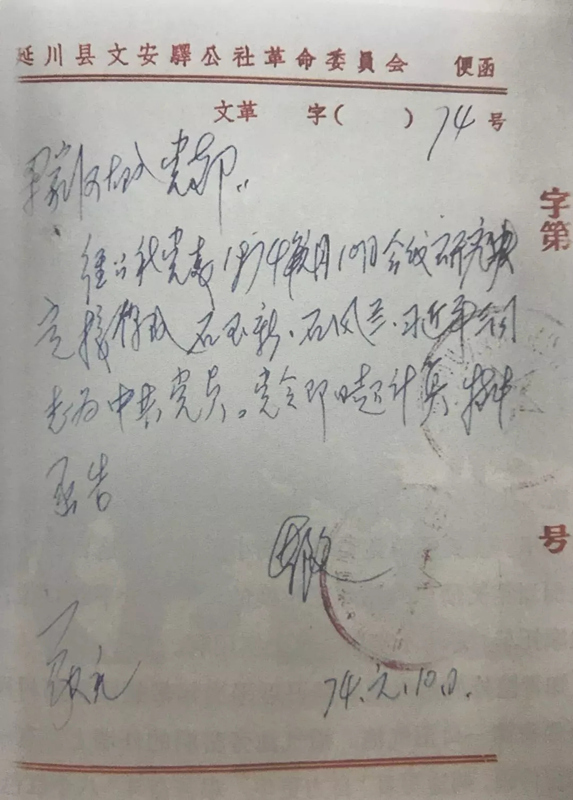 延川县文安驛公社革命委員会 便函
文革 字( ) 74 号
梁家河大队党部:
经公社党委1974年元月10日会议研究决
定接收 石玉新、石凤兰、习近平 同
志为中共党员。党令即日起计算。特此
函告
此致
敬礼
74.元.10日.
字第
号